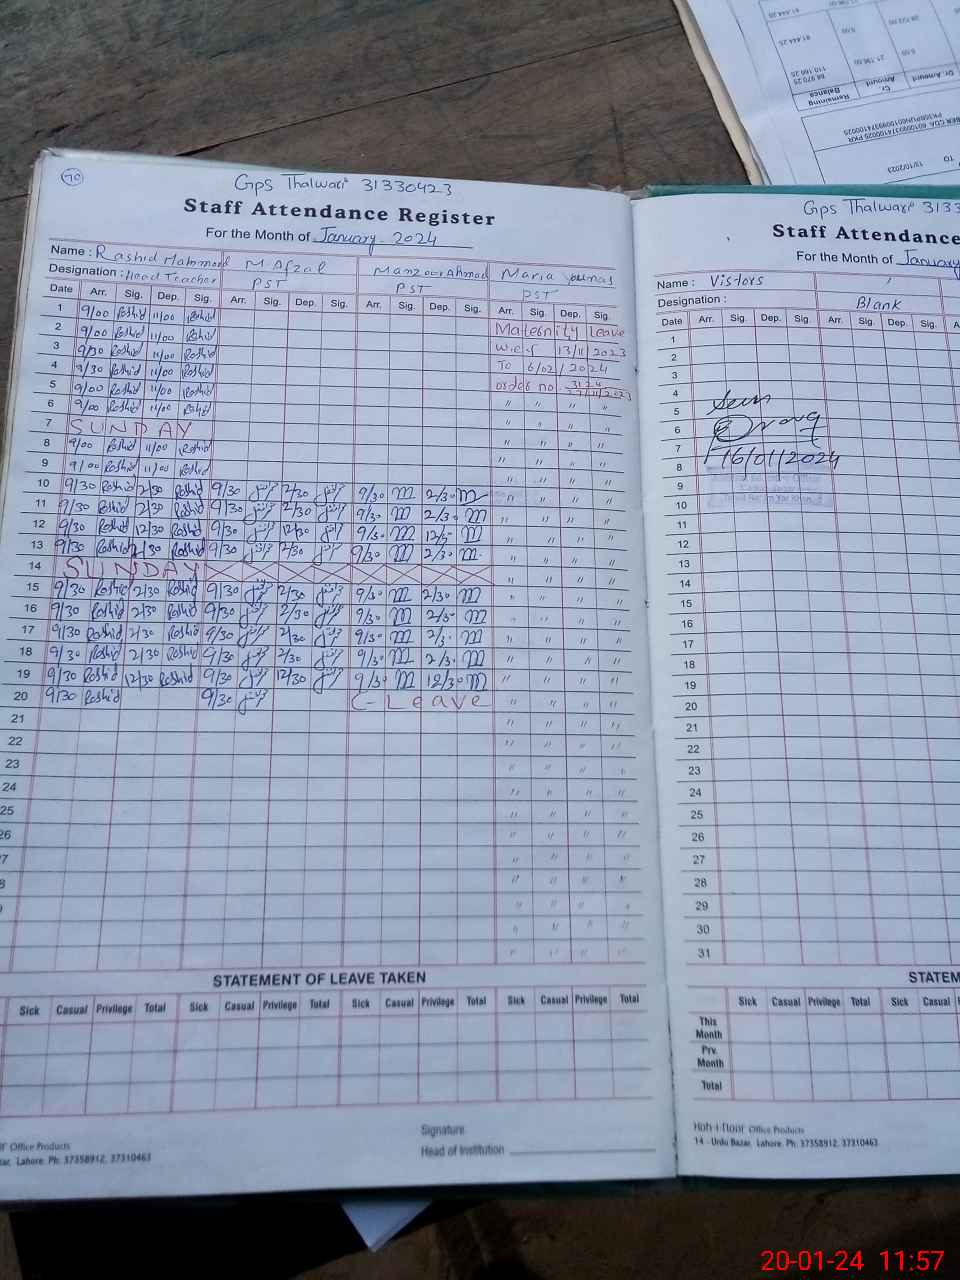 70
Gps Thalwari 31330423
Staff Attendance Register
For the Month of January 2024
Name : Rashid Mahmood M. Afzal Manzoor Ahmad Maria Younas
Designation : Head Teacher PST PST PST
Date Arr. Sig. Dep. Sig. Arr. Sig. Dep. Sig. Arr. Sig. Dep. Sig. Arr. Sig. Dep. Sig.
1 9/00 Rashid 11/00 Rashid Maternity Leave
2 9/00 Rashid 11/00 Rashid w.e.f 13/11/2023
3 9/30 Rashid 11/00 Rashid To 6/02/2024
4 9/30 Rashid 11/00 Rashid order no. 3124
5 9/00 Rashid 11/00 Rashid
6 9/00 Rashid 11/00 Rashid
7 SUNDAY
8 9/00 Rashid 11/00 Rashid
9 9/00 Rashid 11/00 Rashid
10 9/30 Rashid 2/30 Rashid 9/30 2/30 9/30 m 2/30 m
11 9/30 Rashid 2/30 Rashid 9/30 2/30 9/30 m 2/30 m
12 9/30 Rashid 12/30 Rashid 9/30 12/30 9/30 m 12/30 m
13 9/30 Rashid 2/30 Rashid 9/30 2/30 9/30 m 2/30 m
14 SUNDAY
15 9/30 Rashid 2/30 Rashid 9/30 2/30 9/30 m 2/30 m
16 9/30 Rashid 2/30 Rashid 9/30 2/30 9/30 m 2/30 m
17 9/30 Rashid 2/30 Rashid 9/30 2/30 9/30 m 2/30 m
18 9/30 Rashid 2/30 Rashid 9/30 2/30 9/30 m 2/30 m
19 9/30 Rashid 12/30 Rashid 9/30 12/30 9/30 m 12/30 m
20 9/30 Rashid 9/30 C-Leave
21
22
23
24
25
26
7
8
9
STATEMENT OF LEAVE TAKEN
Sick Casual Privilege Total Sick Casual Privilege Total Sick Casual Privilege Total Sick Casual Privilege Total
Signature
Head of Institution
Office Products
zar, Lahore. Ph: 37358912, 37310463
Gps Thalwari 3133
Staff Attendance
For the Month of January
Name : Vistors
Designation : Blank
Date Arr. Sig. Dep. Sig. Arr. Sig. Dep. Sig. A
1
2
3
4
5 Seen
6
7
8 16/01/2024
9
10
11
12
13
14
15
16
17
18
19
20
21
22
23
24
25
26
27
28
29
30
31
STATEM
Sick Casual Privilege Total Sick Casual
This Month
Prv. Month
Total
Office Products
14 - Urdu Bazar, Lahore. Ph: 37358912, 37310463
Dr. Amount Cr. Amount Remaining Balance
13/10/2023
TO
20-01-24 11:57